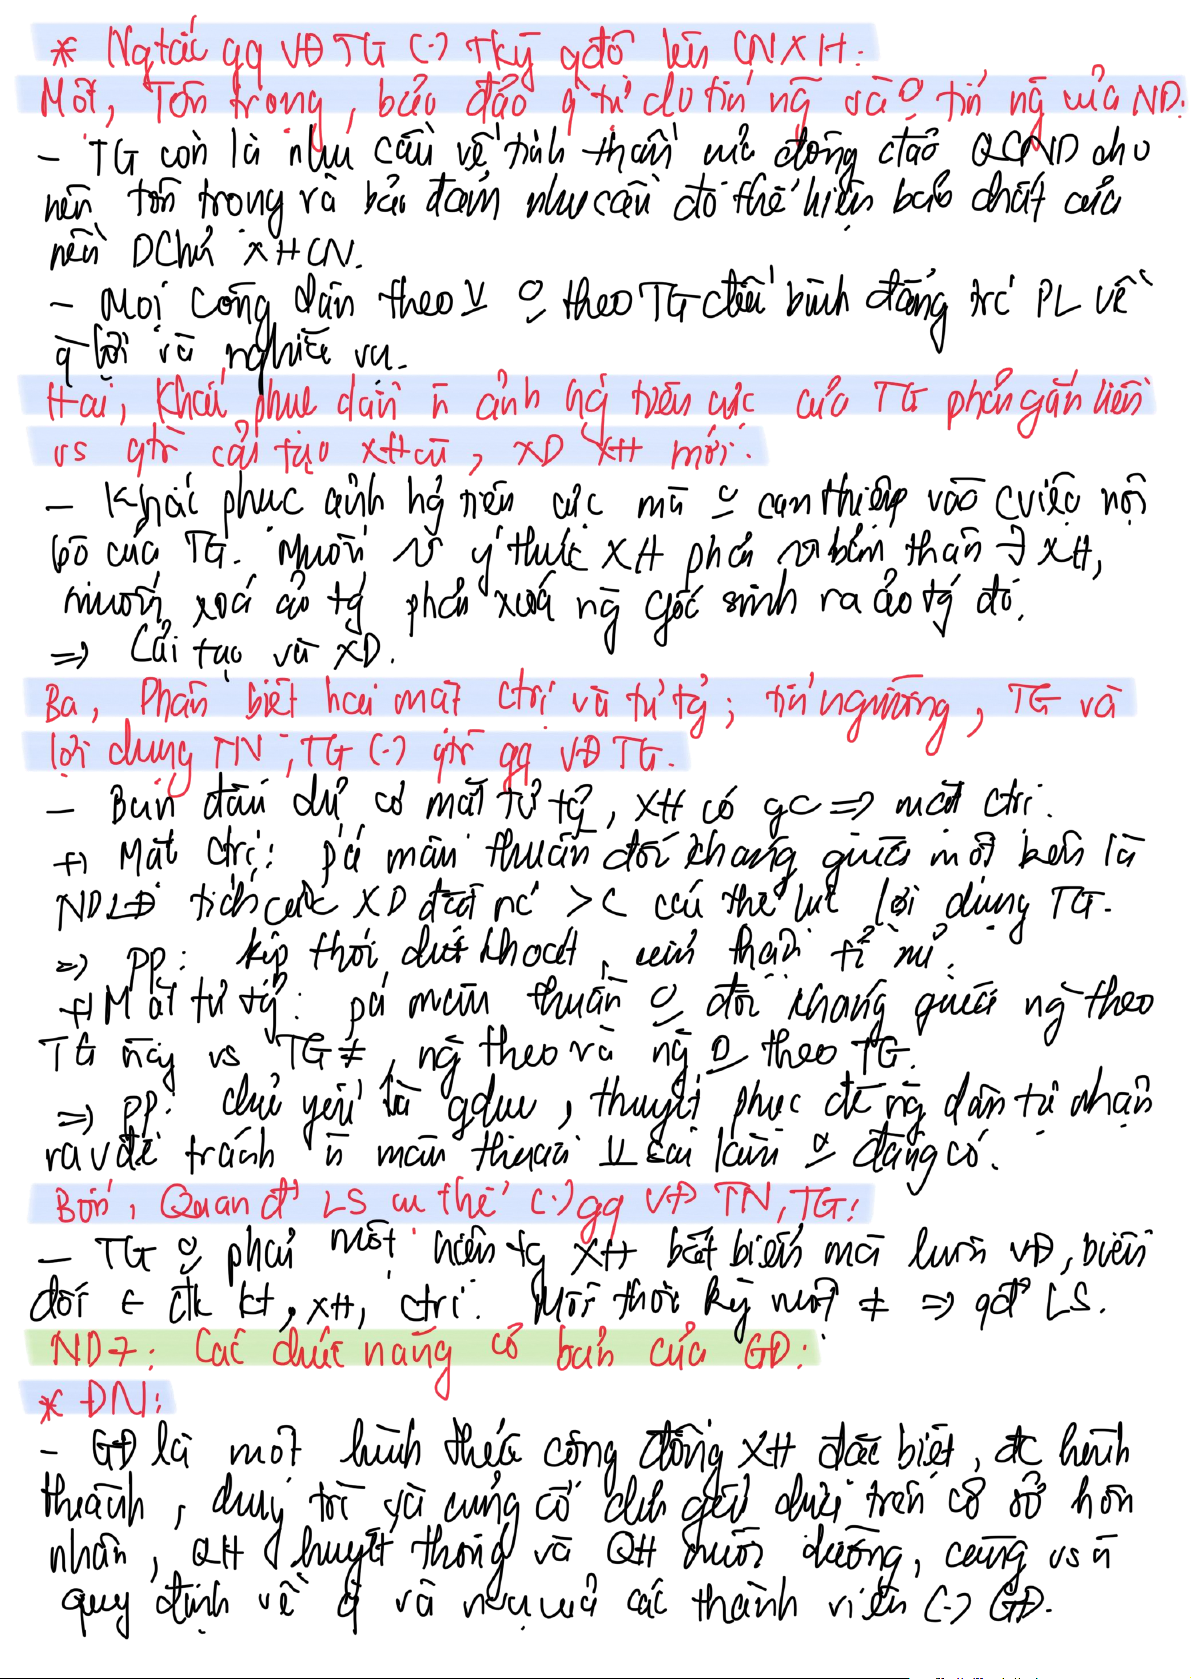 * Ngtắc gq VĐ TG (-) Tkỳ qđộ lên CNXH:
Một, Tôn trọng, bảo đảo q tự do tín ng và o tín ng của ND.
- TG còn là nhu cầu về tinh thần của đông đảo QCND cho
nên tôn trọng và bảo đảm nhu cầu đó thể hiện bản chất của
nền DChủ XHCN.
- Mọi công dân theo V O theo TG đều bình đẳng trc PL về
q lợi và nghĩa vụ.
Hai, Khắc phục dần ~n ảnh hg tiêu cực của TG phải gắn liền
vs qtr cải tạo XH cũ, XD XH mới.
- Khắc phục ảnh hg tiêu cực mà o can thiệp vào cviệc nội
bộ của TG. Muốn ý thức XH phải bản thân ∃ XH,
muốn xoá ảo tg phải xoá ng gốc sinh ra ảo tg đó.
=> Cải tạo và XD.
Ba, Phân biệt hai mặt ctrị và tư tg; tín ngưỡng, TG và
lợi dụng TN, TG (-) qtr gq VĐ TG.
- Ban đầu chỉ có mặt tư tg, XH có gc => mặt ctrị.
+) Mặt ctrị: pá mâu thuẫn đối kháng giữa một bên là
NDLĐ tích cực XD đất nc >< các thế lực lợi dụng TG.
=> PP: kịp thời, dứt khoát, cẩn thận tỉ mỉ.
+) Mặt tư tg: pá mâu thuẫn o đối kháng giữa ng theo
TG này vs TG ≠, ng theo và ng o theo TG.
=> PP: chủ yếu là gduc, thuyết phục để ng dân tự nhận
ra vđề tránh ~n mâu thuẫn V sai lầm o đáng có.
Bốn, Quan đ' LS cụ thể (-) gq VĐ TN, TG:
- TG o phải một hiện tg XH bất biến mà luôn vđ, biến
đổi ∈ đk kt, XH, ctrị. Mỗi thời kỳ một ≠ => qđ' LS.
ND7: Các chức năng cơ bản của GĐ:
* ĐN:
- GĐ là một hình thức cộng đồng XH đặc biệt, đc hình
thành, duy trì và củng cố chủ yếu dựa trên cơ sở hôn
nhân, QH huyết thống và QH nuôi dưỡng, cùng vs ~n
quy định về q và nvụ của các thành viên (-) GĐ.